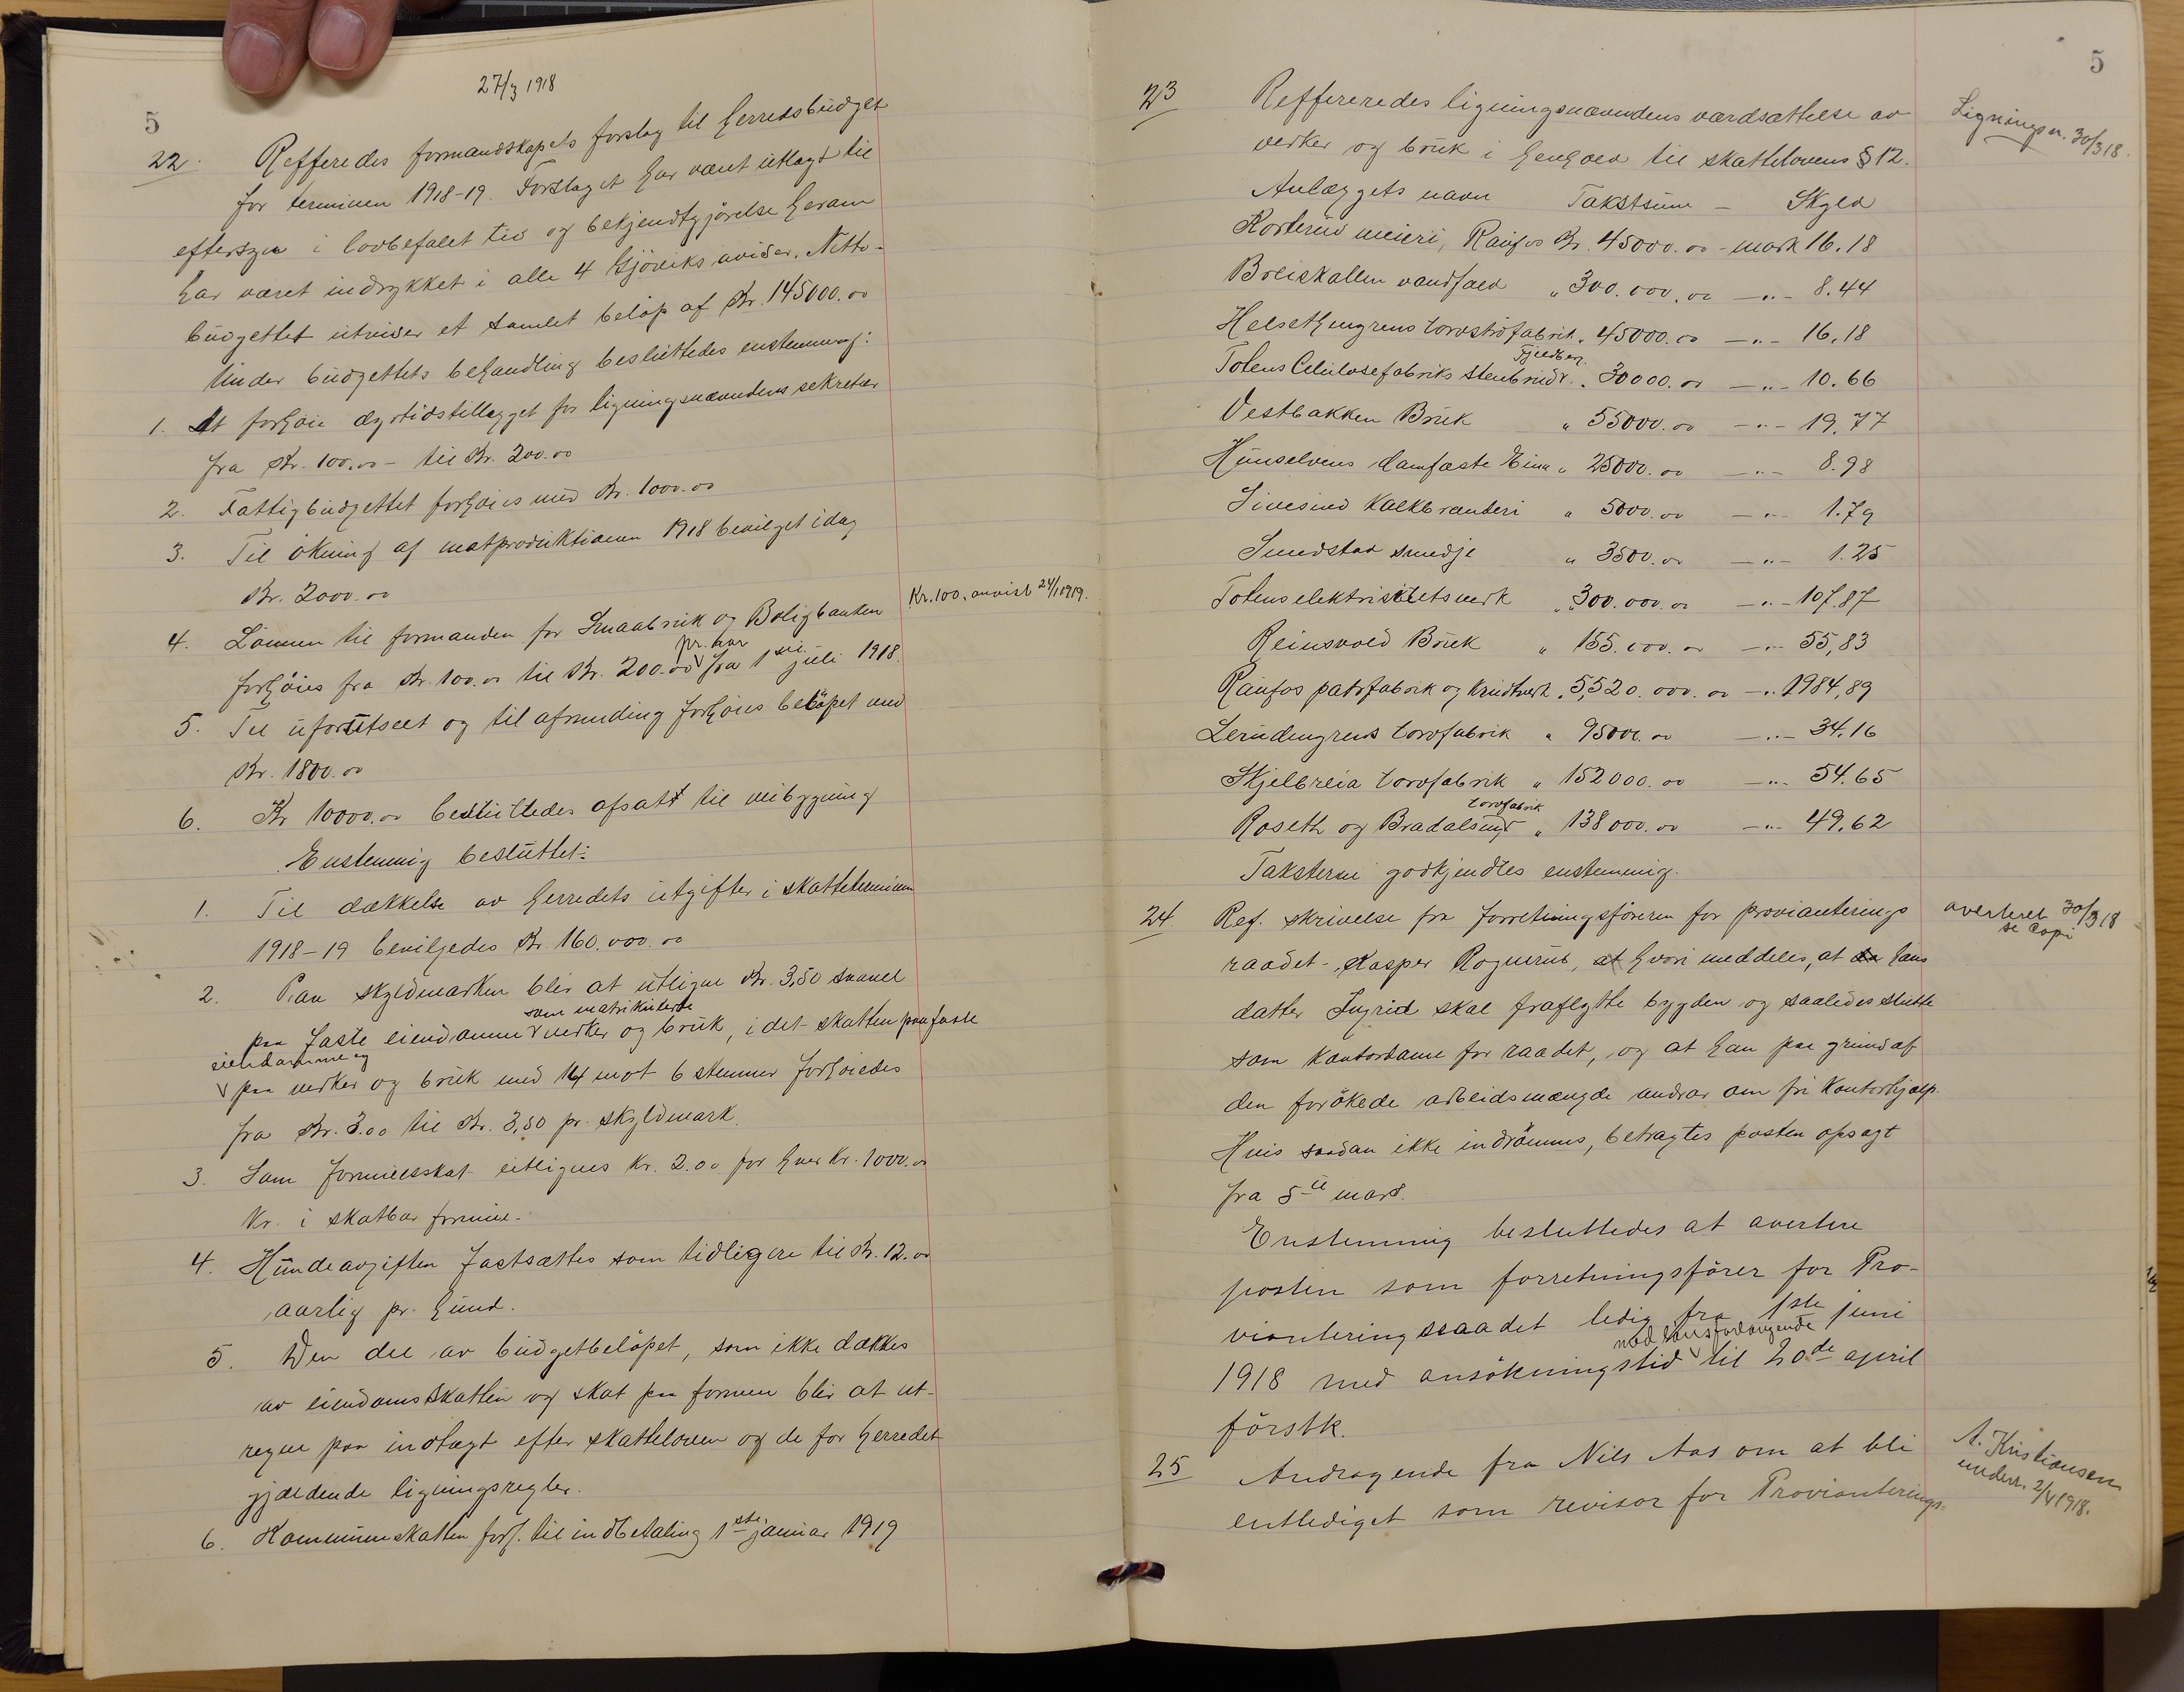 27/3 1918
5
22. Refferedes formandskapets forslag til Herredsbudget
for terminen 1918-19. Forslaget har vært utlagt til
eftersyn i lovbefalet tid og bekjendtgjørelse herom
har været indrykket i alle 4 Gjøviks aviser. Netto-
budgettet utviser et samlet beløp af Kr. 145000.00
Under budgettets behandling besluttedes enstemmig:
1. At forhøie dyrtidstillægget for ligningsnævndens sekretær
fra Kr. 100.00 - til Kr. 200.00
2. Fattigbudgettet forhøies med Kr. 1000.00
3. Til økning af matproduktionen 1918 bevilget idag
Kr. 2000.00
4. Lønnen til formanden for Smaabruk og Boligbanken
Kr. 100, anvist 24/1 1919.
pr. aar
forhøies fra Kr. 100.00 til Kr. 200.00 fra 1ste juli 1918.
5. Til uforutseet og til afrunding forhøies beløpet med
Kr. 1800.00
6. Kr 10000.00 besluttedes afsatt til veibygning
Enstemmig besluttet:
1. Til dækkelse av herredets utgifter i skatteterminen
1918-19 beviljedes Kr. 160.000.00
2. Paa skyldmarken blir at utligne Kr. 3,50 saavel
som matrikulerte
paa faste eiendomme verker og bruk, i det skatten paa faste
eiendomme og
paa verker og bruk med 14 mot 6 stemmer forhøiedes
fra Kr. 3.00 til Kr. 3,50 pr. skyldmark.
3. Som formuesskat utlignes Kr. 2.00 for hver Kr. 1000.00
Kr. i skatbar formue.
4. Hundeavgiften fastsættes som tidligere til Kr. 12.00
aarlig pr. hund.
5. Den del av budgetbeløpet, som ikke dækkes
av eiendomsskatten og skat paa formue blir at ut-
regne paa indtægt efter skatteloven og de for herredet
gjældende ligningsregler.
6. Kommuneskatten forf. til indbetaling 1ste januar 1919
5
23 Reffereredes ligningsnævndens værdsættelse av
Ligningsn. 30/3 18.
verker og bruk i henhold til skattelovens § 12.
Anlæggets navn Takstsum - Skyld
Korterud meieri, Raufos Kr. 45000.00 - mark 16.18
Breiskallen vandfald " 300.000.00 -"- 8.44
Helsethengrens torvstrøfabrik " 45000.00 -"- 16.18
Fjeldberg
Totens Cellulosefabriks stenbrudd " 30000.00 -"- 10.66
Vestbakken Bruk " 55000.00 -"- 19.77
Hunselvens damfæste Eina " 25000.00 -"- 8.98
Sivesind Kalkbrænderi " 5000.00 -"- 1.79
Smedstad smedje " 3500.00 -"- 1.25
Totens elektrisitetsverk " 300.000.00 -"- 107.87
Reinsvold Bruk " 155.000.00 -"- 55,83
Raufos patrfabrik og Krudtverk " 5,520.000.00 -"- 1984,89
Lerudengens torvfabrik " 95000.00 -"- 34.16
Skjelbreia torvfabrik " 152000.00 -"- 54.65
torvfabrik
Roseth og Bradalsmyr " 138000.00 -"- 49.62
Taksterne godkjendtes enstemmig.
24 Ref. skrivelse fra forretningsføreren for provianterings
averteret 30/3 18
se Copi
raadet - Kasper Rognerud, at hvori meddeles, at hans
datter Ingrid skal fraflytte bygden og saaledes slutte
som kontordame for raadet, og at han paa grund af
den forøkede arbeidsmængde andrar om fri kontorhjælp.
Hvis saadan ikke indrømmes, betragtes posten opsagt
fra 5te mars.
Enstemmig besluttedes at avertere
posten som forretningsfører for Pro-
vianteringsraadet ledig fra 1ste juni
med lønsfordrgende
1918 med ansøkningstid til 20de april
førstk.
25 Andragende fra Nils Aas om at bli
A. Kristiansen
underr. 2/4 1918.
entlediget som revisor for Provianterings-